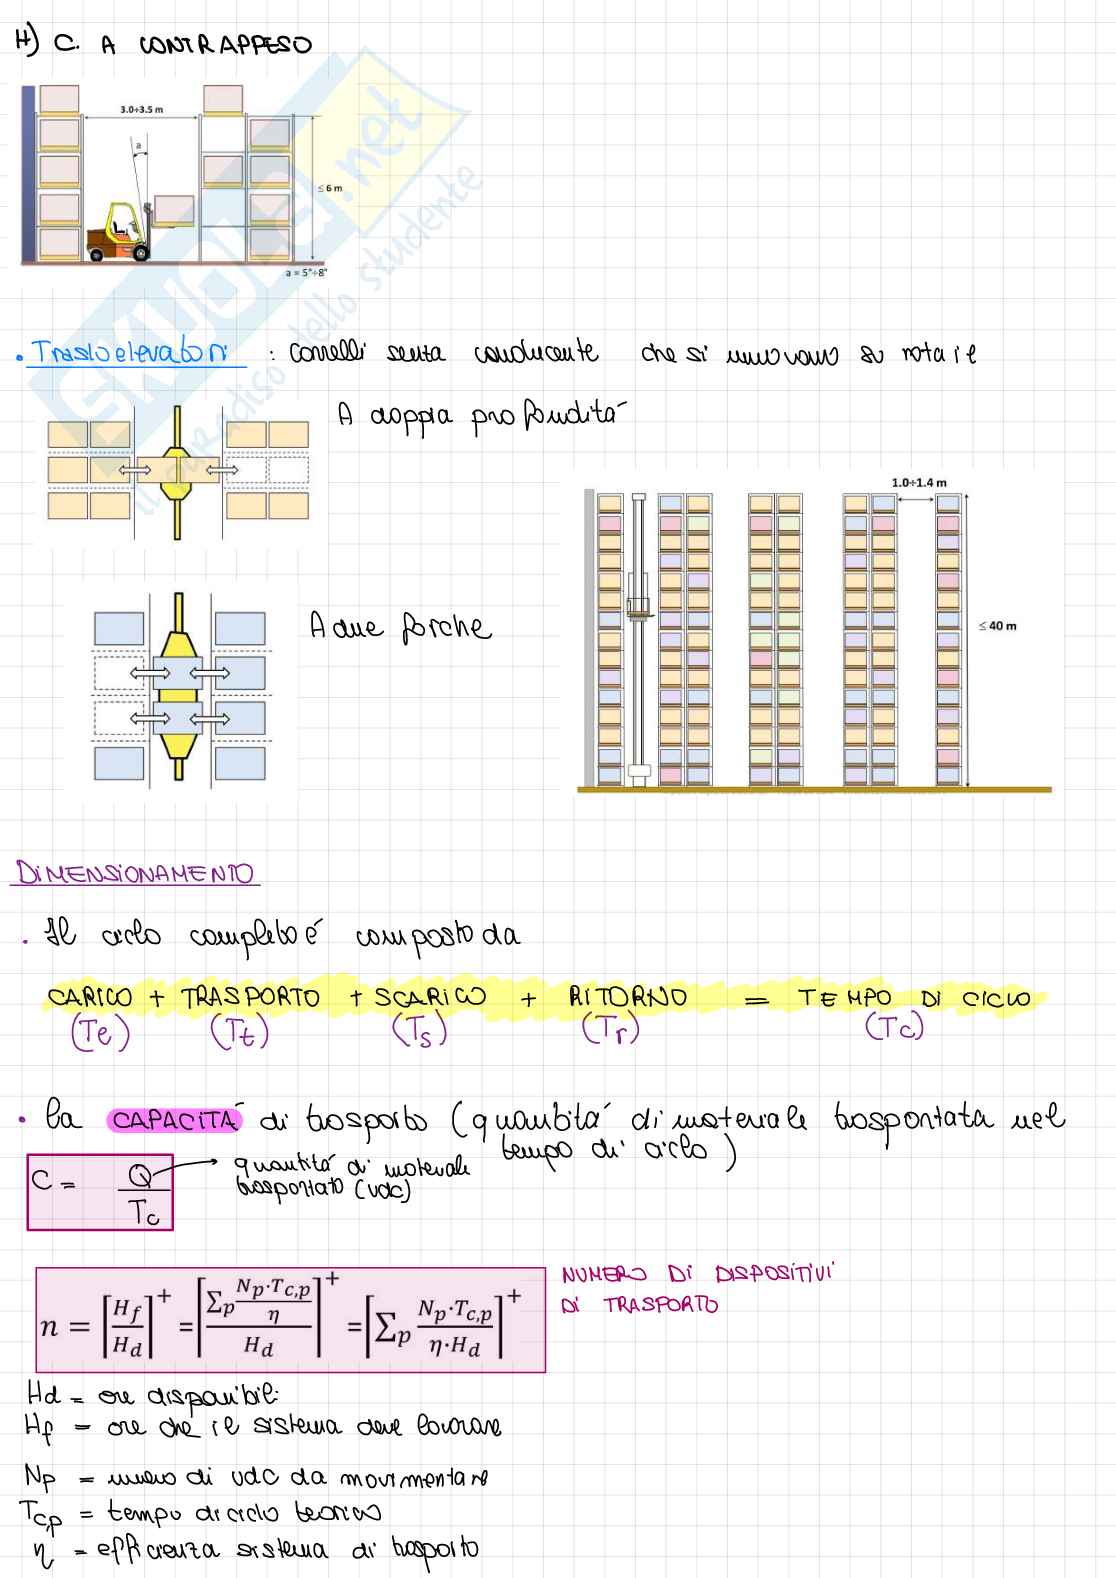 4) C. A CONTRAPPESO
3.0÷3.5 m
a
≤ 6 m
a = 5°÷8°
SKUOLA.net
il paradiso dello studente
• Trasloelevatori : Carrelli senza conducente che si muovono su rotaie
A doppia profondità
1.0÷1.4 m
A due forche
≤ 40 m
DIMENSIONAMENTO
• Il ciclo completo é composto da
CARICO + TRASPORTO + SCARICO + RITORNO = TEMPO DI CICLO
(Te) (Tt) (Ts) (Tr) (Tc)
• la CAPACITÁ di trasporto (quantitá di materiale trasportata nel
tempo di ciclo)
C = Q / Tc → quantitá di materiale
trasportato (udc)
n = ⌈Hf / Hd⌉⁺ = ⌈(∑p (Np·Tc,p / η)) / Hd⌉⁺ = ⌈∑p (Np·Tc,p) / (η·Hd)⌉⁺
NUMERO DI DISPOSITIVI
DI TRASPORTO
Hd = ore disponibili
Hf = ore che il sistema deve lavorare
Np = numero di udc da movimentare
Tc,p = tempo di ciclo teorico
η = efficienza sistema di trasporto